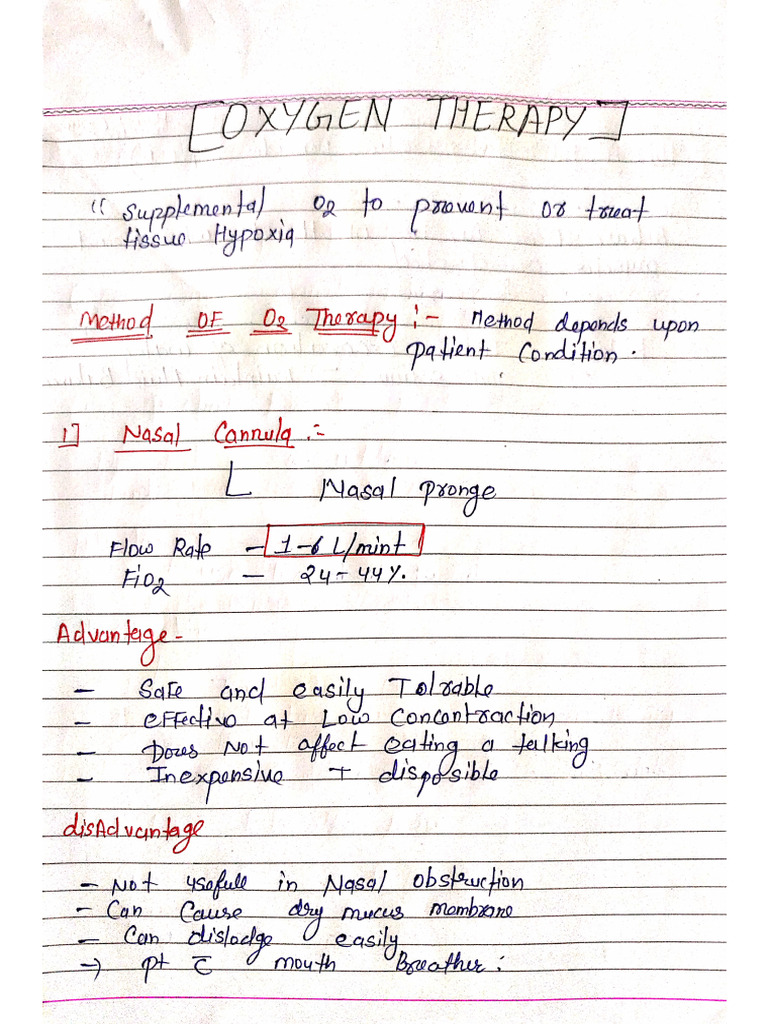 [OXYGEN THERAPY]
" Supplemental O2 to prevent or treat
tissue Hypoxia
Method OF O2 Therapy :- Method depends upon
patient Condition.
1] Nasal Cannula :-
L Nasal pronge
Flow Rate - 1-6 L/mint
FiO2 - 24-44%.
Advantage -
- Safe and easily Tolrable
- effective at Low Concontraction
- Dores Not affect eating a talking
- Inexpensive + disposible
disAdvantage
- Not usefull in Nasal obstruction
- Can Cause dry mucus membrane
- Can dislodge easily
→ pt c̄ mouth Breather :